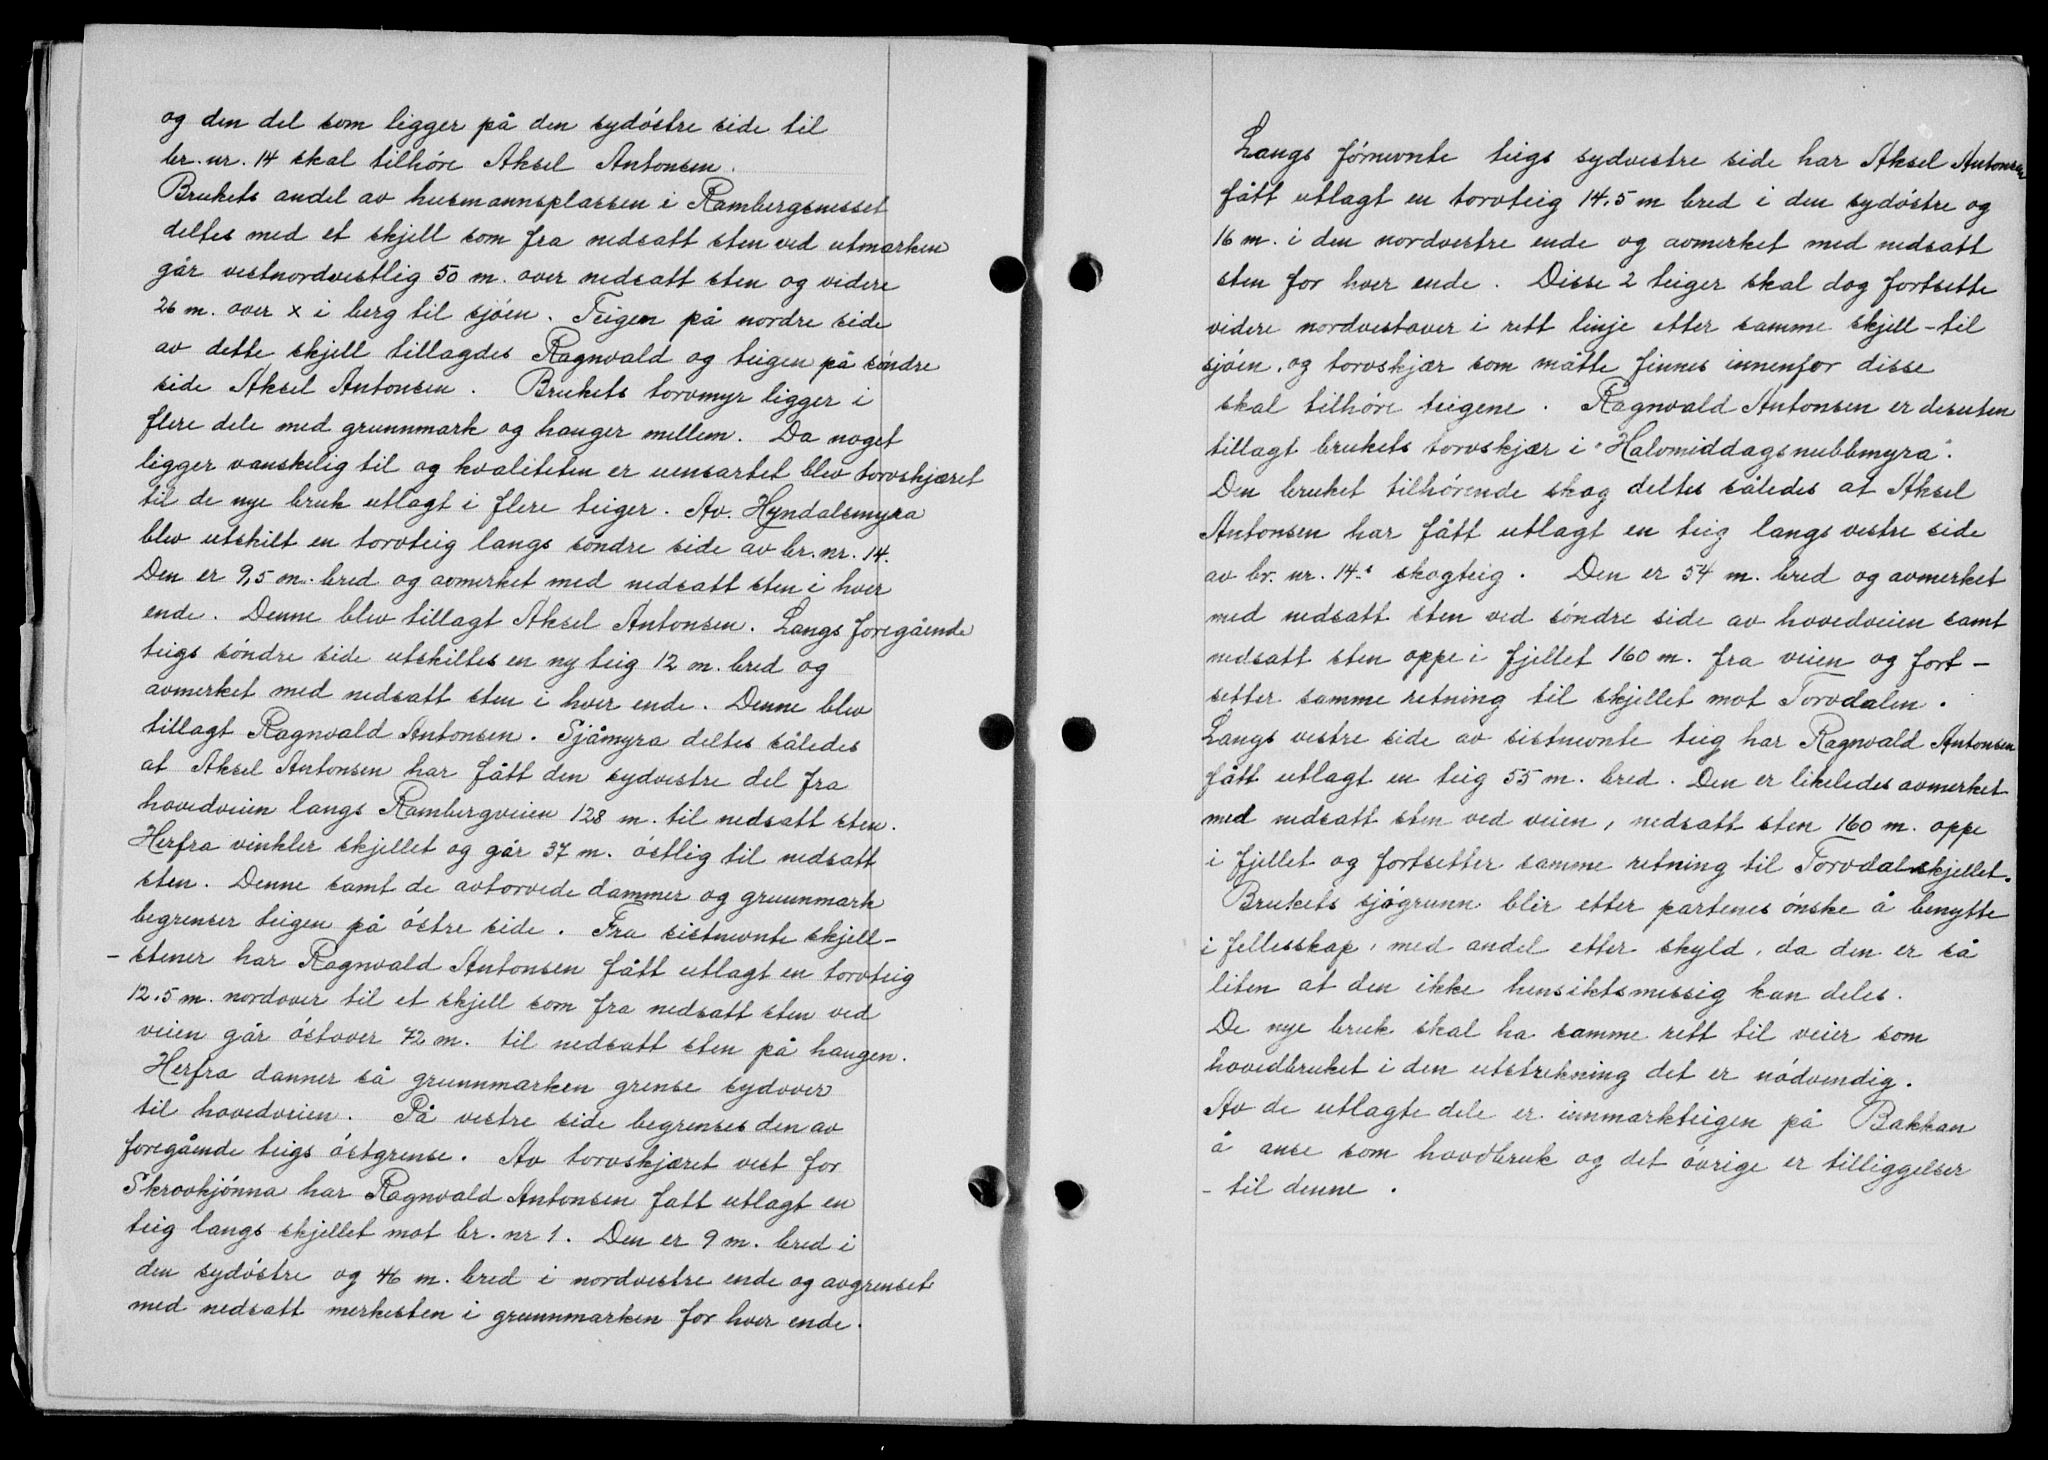 og den del som ligger på den sydöstre side til
br. nr. 14 skal tilhöre Aksel Antonsen.
Brukets andel av husmannsplassen i Rambergsnesset
deltes med et skjell som fra nedsatt sten ved utmarken
går vestnordvestlig 50 m. over nedsatt sten og videre
26 m. over x i berg til sjöen. Teigen på nordre side
av dette skjell tillagdes Ragnvald og teigen på söndre
side Aksel Antonsen. Brukets torvmyr ligger i
flere dele med grunnmark og hauger mellem. Da noget
ligger vanskelig til og kvaliteten er uensartet blev torvskjæret
til de nye bruk utlagt i flere teiger. Av. Hyndalsmyra
blev utskilt en torvteig langs söndre side av br. nr. 14.
Den er 9,5 m. bred og avmerket med nedsatt sten i hver
ende. Denne blev tillagt Aksel Antonsen. Langs foregående
teigs söndre side utskiltes en ny teig 12 m. bred og
avmerket med nedsatt sten i hver ende. Denne blev
tillagt Ragnvald Antonsen. Sjåmyra deltes således
at Aksel Antonsen har fått den sydvestre del fra
hovedveien langs Rambergveien 128 m. til nedsatt sten.
Herfra vinkler skjellet og går 37 m. östlig til nedsatt
sten. Denne samt de avtorvede dammer og grunnmark
begrenser teigen på östre side. Fra sistnevnte skjell-
- stener har Ragnvald Antonsen fått utlagt en torvteig
12.5 m. nordover til et skjell som fra nedsatt sten ved
veien går östover 72 m. til nedsatt sten på haugen.
Herfra danner så grunnmarken grense sydover
til hovedveien. På vestre side begrenses den av
foregående teigs östgrense. Av torvskjæret vest for
Skrovkjönna har Ragnvald Antonsen fatt utlagt en
teig langs skjellet mot br. nr 1. Den er 9 m. bred i
den sydöstre og 46 m. bred i nordvestre ende og avgrenset
med nedsatt merkesten i grunnmarken for hver ende.
Langs förnevnte teigs sydvestre side har Aksel Antonsen
fått utlagt en torvteig 14.5 m bred i den sydöstre og
16 m. i den nordvestre ende og avmerket med nedsatt
sten for hver ende. Disse 2 teiger skal dog fortsette
videre nordvestover i rett linje etter samme skjell - til
sjöen, og torvskjær som måtte finnes innenfor disse
skal tilhöre teigene. Ragnvald Antonsen er desuten
tillagt brukets torvskjær i "Halvmiddagsnubbmyra".
Den bruket tilhörende skog deltes således at Aksel
Antonsen har fått utlagt en teig langs vestre side
av br. nr. 14.s skogteig. Den er 54 m. bred og avmerket
med nedsatt sten ved söndre side av hovedveien samt
nedsatt sten oppe i fjellet 160 m. fra veien og fort-
setter samme retning til skjellet mot Torvdalen.
Langs vestre side av sistnevnte teig har Ragnvald Antonsen
fått utlagt en teig 55 m. bred. Den er likeledes avmerket
med nedsatt sten ved veien, nedsatt sten 160 m. oppe
i fjellet og fortsetter samme retning til Torvdalskjellet.
Brukets sjögrunn blir etter partenes önske å benytte
i fellesskap, med andel etter skyld, da den er så
liten at den ikke hensiktsmessig kan deles.
De nye bruk skal ha samme rett til veier som
hovedbruket i den utstrekning det er nödvendig.
Av de utlagte dele er innmarkteigen på Bakkan
å anse som hovdbruk og det övrige er tilliggelser
- til denne.